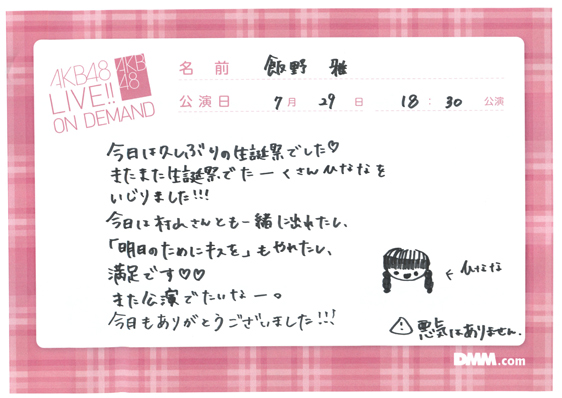 AKB48
LIVE!!
ON DEMAND
AKB
48
名前 飯野 雅
公演日 7月29日 18:30 公演
今日は久しぶりの生誕祭でした♡
またまた生誕祭でたーくさんひななを
いじりました!!!
今日は村山さんとも一緒に出れたし、
「明日のためにキスを」もやれたし、
満足です♡♡
また公演でたいなー。
今日もありがとうございました!!!
←ひなな
⚠悪気はありません.
DMM.com